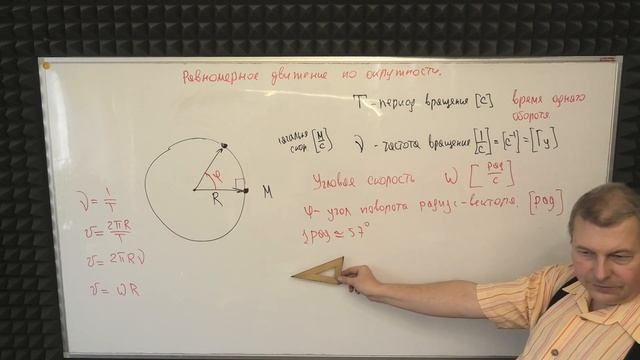 Равномерное движение по окружности.
T - период вращения [с] время одного
оборота
скор. [м/с] ν - частота вращения [1/[с]] = [с⁻¹] = [Гц]
Угловая скорость ω [рад/с]
φ - угол поворота радиус-вектора. [рад]
1 рад ≃ 57°
φ
R
M
ν = 1/T
υ = 2πR/T
υ = 2πRν
υ = ωR